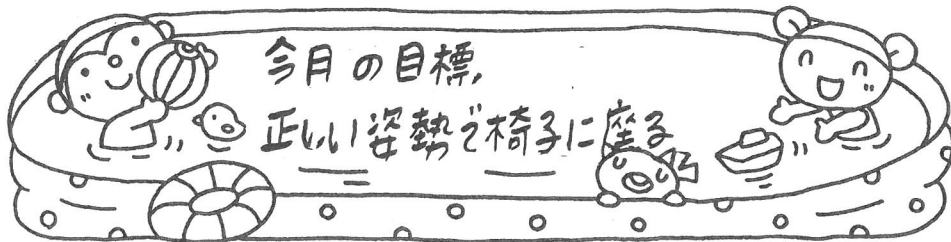 今月の目標,
正しい姿勢で椅子に座る